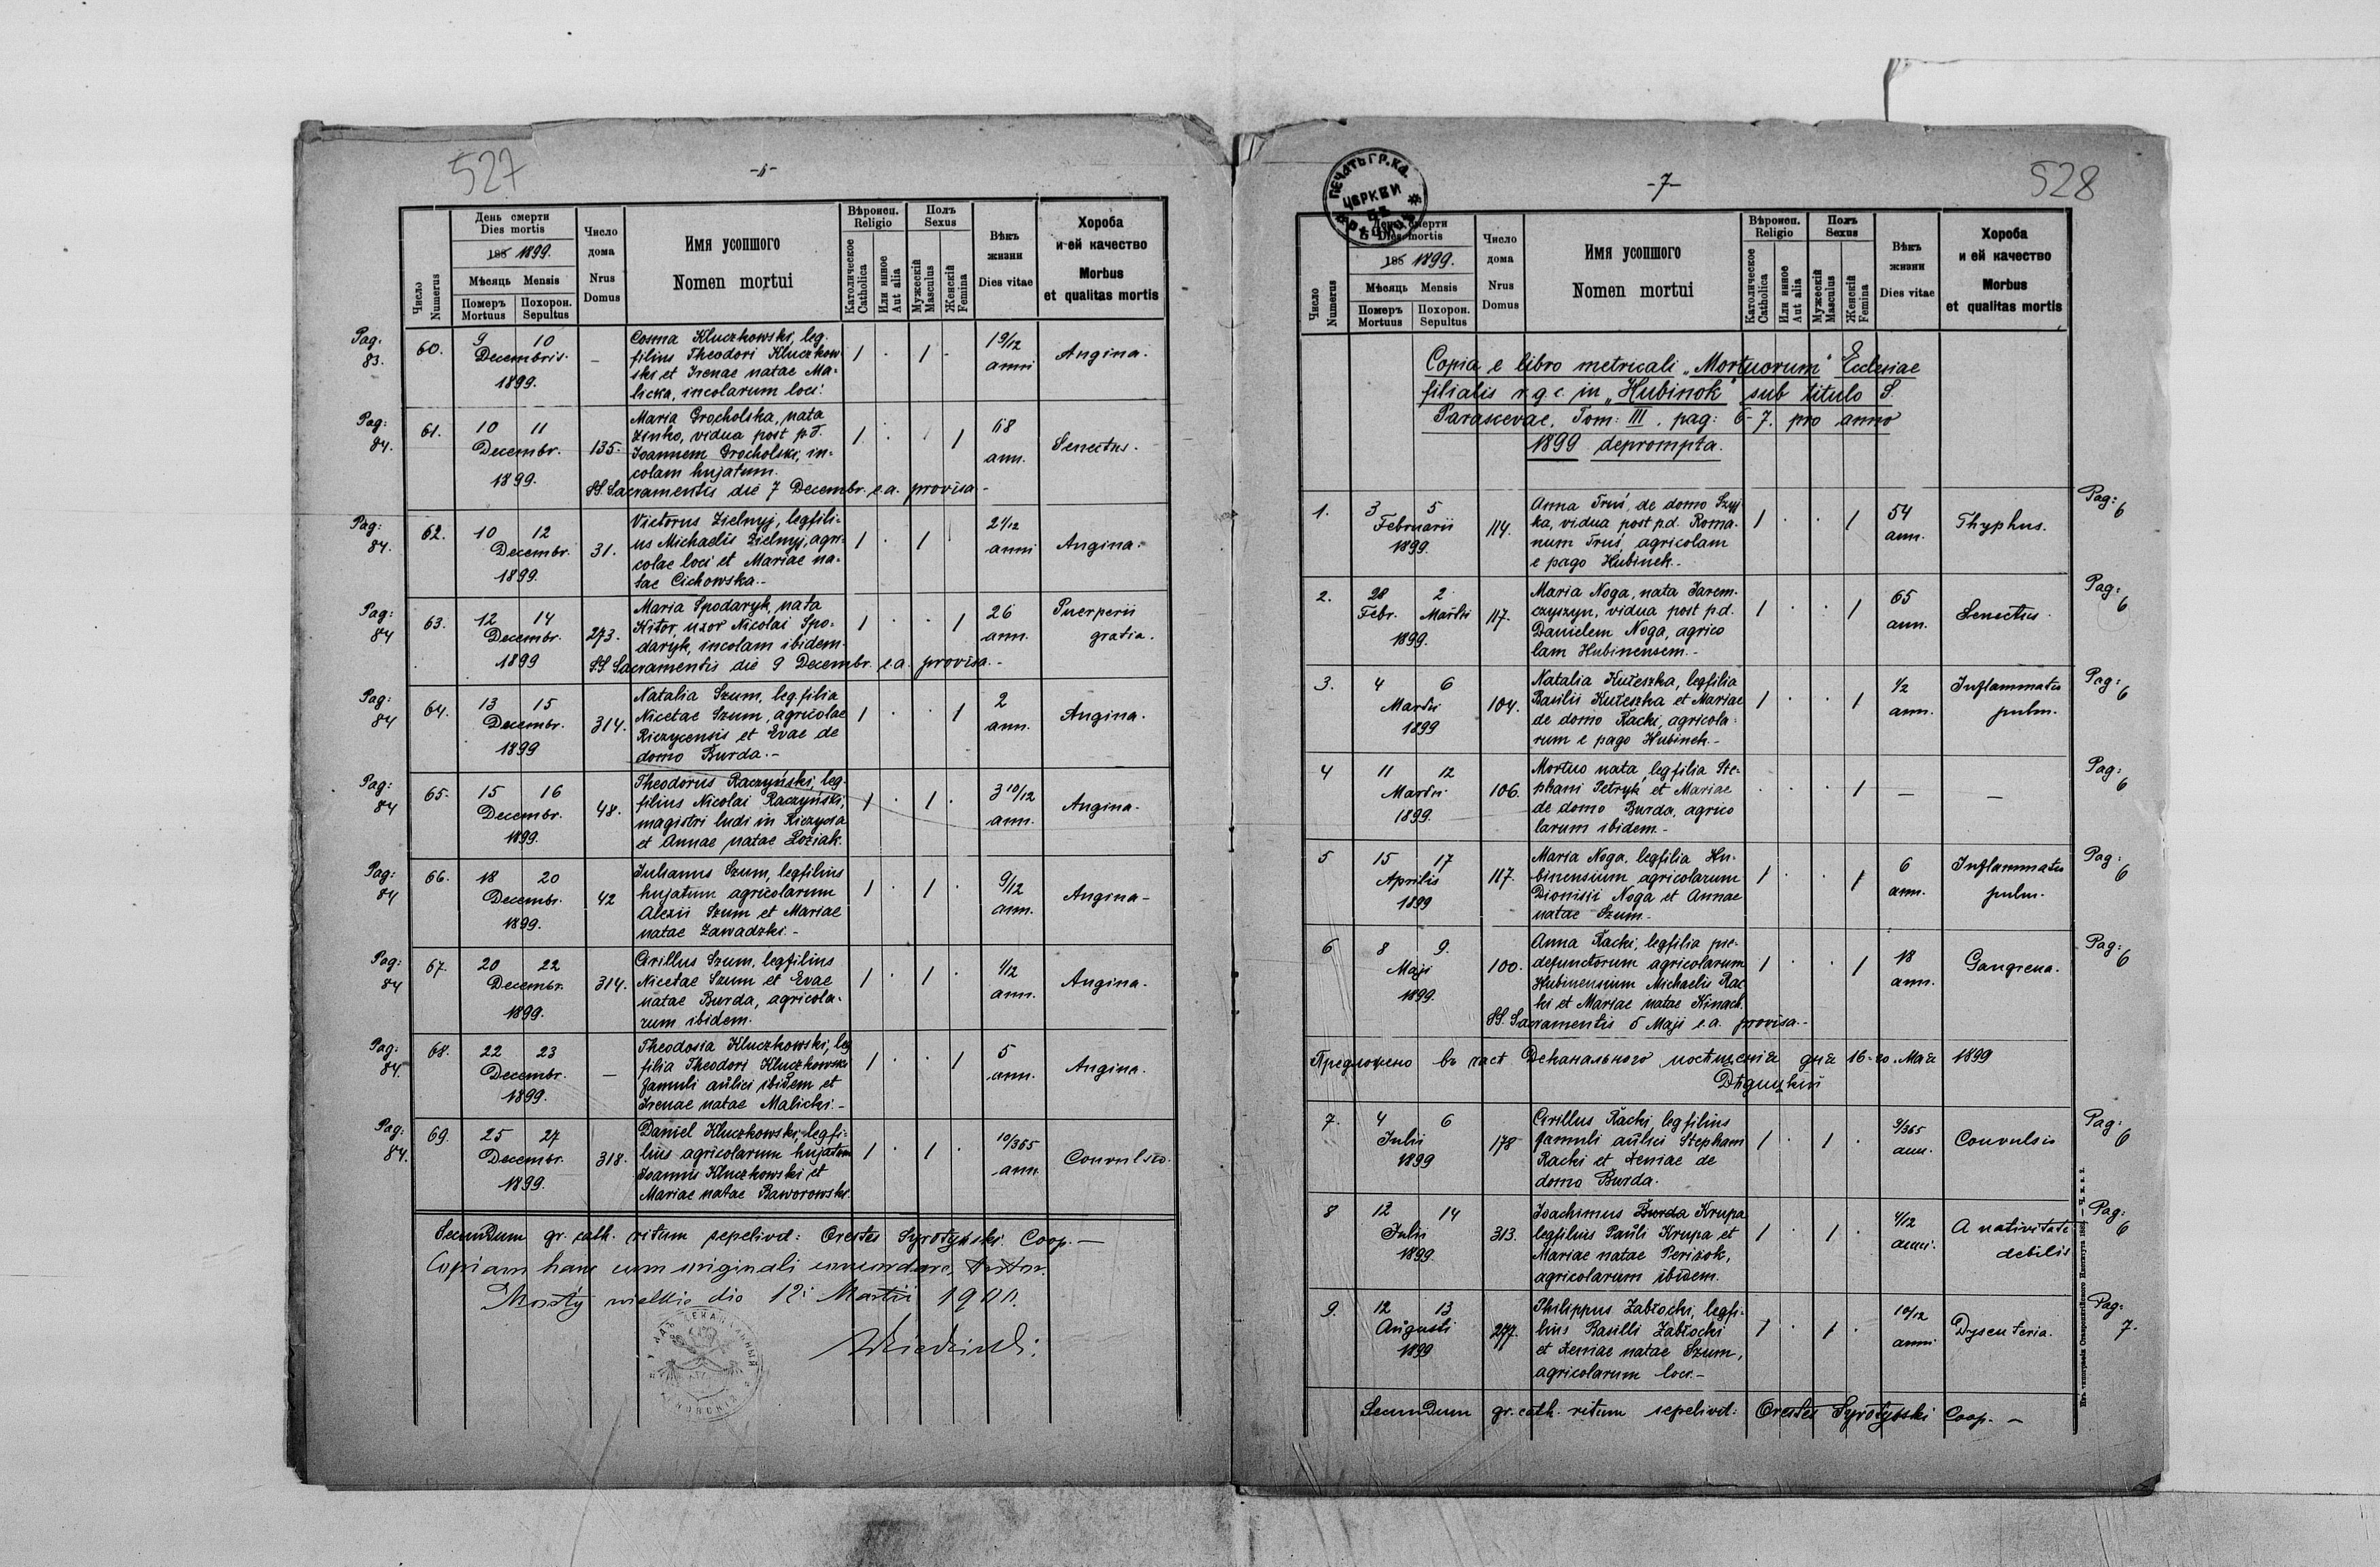 527
Число
Numerus
День смерти
Dies mortis
188 1899.
Мѣсяць Mensis
Померъ
Mortuus
Похорон.
Sepultus
Число
дома
Nrus
Domus
Имя усопшого
Nomen mortui
Вѣроисп.
Religio
Католическое
Catholica
Или инное
Aut alia
Полъ
Sexus
Мужескій
Masculus
Женскій
Femina
Вѣкъ
жизни
Dies vitae
Хороба
и ей качество
Morbus
et qualitas mortis
Pag. 83.
60.
9 10
Decembris.
1899.
–
Cosma Kluczkowski, leg.
filius Theodori Kluczkow
ski et Irenae natae Ma-
licka, incolarum loci.
1 . 1 .
1 9/12
anni
Angina.
Pag: 84.
61.
10 11
Decembr.
1899.
135.
Maria Grocholska, nata
Zinko, vidua post p.d.
Ioannem Grocholski, in-
colam hujatum.
SS. Sacramentis die 7 Decembr. e.a. provisa –
1 . . 1
68
ann.
Senectus.
Pag: 84.
62.
10 12
Decembr.
1899.
31.
Victorus Zielnyj, legfili-
us Michaelis Zielnyj, agri-
colae loci et Mariae na-
tae Cichowska.–
1 . 1
2 1/12
anni
Angina.
Pag: 84
63.
12 14
Decembr.
1899
273.
Maria Spodaryk, nata
Kitor, uxor Nicolai Spo-
daryk, incolam ibidem.
SS Sacramentis die 9 Decembr. e.a. provisa.–
1 . . 1
26
ann.
Puerperii
gratia.
Pag: 84
64.
13 15
Decembr.
1899
314.
Natalia Szum, leg.filia
Nicetae Szum, agricolae
Riczycensis et Evae de
domo Burda.–
1 . . 1
2
ann.
Angina.
Pag: 84
65.
15 16
Decembr.
1899.
48.
Theodorus Raczyński, leg-
filius Nicolai Raczyński,
magistri ludi in Riczyca
et Annae natae Loziak.
1 . 1 .
3 10/12
ann.
Angina.
Pag: 84
66.
18 20
Decembr.
1899.
42
Iulianus Szum, legfilius
hujatum agricolarum
Alexii Szum et Mariae
natae Zawadzki.–
1 . 1 .
9/12
ann.
Angina–
Pag: 84
67.
20 22
Decembr.
1899.
314.
Cirillus Szum, legfilius
Nicetae Szum et Evae
natae Burda, agricola-
rum ibidem.
1 . 1 .
1/12
ann.
Angina.
Pag: 84.
68.
22 23
Decembr.
1899.
–
Theodosia Kluczkowski, leg
filia Theodori Kluczkowski
famuli aulici ibidem et
Irenae natae Malicki.–
1 . . 1
5
ann.
Angina.
Pag: 84.
69.
25 27
Decembr.
1899.
318.
Daniel Kluczkowski, legfi-
lius agricolarum hujatum
Ioannis Kluczkowski et
Mariae natae Baworowski.
1 . 1 .
10/365
ann.
Convulsio.
Secundum gr. cath. ritum sepelivit: Orestes Syrotynski Coop.–
Copiam hanc cum originali concordare,
Mosty wielkie die 12. Martii 1900.
528
-7-
ПЕЧАТЬ ГР. КА.
ЦЕРКВИ
Число
Numerus
День смерти
Dies mortis
188 1899.
Мѣсяць Mensis
Померъ
Mortuus
Похорон.
Sepultus
Число
дома
Nrus
Domus
Имя усопшого
Nomen mortui
Вѣроисп.
Religio
Католическое
Catholica
Или инное
Aut alia
Полъ
Sexus
Мужескій
Masculus
Женскій
Femina
Вѣкъ
жизни
Dies vitae
Хороба
и ей качество
Morbus
et qualitas mortis
Copia e libro metricali „Mortuorum" Ecclesiae
filialis r.g.c. in „Hubinok" sub titulo S.
Parascevae. Tom: III. pag: 6-7. pro anno
1899 deprompta.
1.
3 5
Februarii
1899.
114.
Anna Truś, de domo Szyj
ka, vidua post p.d. Roma-
num Truś, agricolam
e pago Hubinek.–
1 . . 1
54
ann.
Thyphus.
Pag: 6
2.
28 2
Febr. Martii
1899.
117.
Maria Noga, nata Jarem-
czyszyn, vidua post p.d.
Danielem Noga, agrico
lam Hubinensem.–
1 . . 1
65
ann.
Senectus.
Pag: 6
3.
4 6
Martii
1899
104.
Natalia Kułeszka, legfilia
Basilii Kułeszka et Mariae
de domo Racki, agricola-
rum e pago Hubinek.–
1 . . 1
1/2
ann.
Inflammatio
pulm.
Pag: 6
4
11 12
Martii
1899.
106.
Mortuo nata, legfilia Ste-
phani Petryk et Mariae
de domo Burda, agrico
larum ibidem.–
. . . 1
– –
Pag: 6
5
15 17
Aprilis
1899
117.
Maria Noga, legfilia Hu-
binensium agricolarum
Dionisii Noga et Annae
natae Szum.–
1 . . 1
6
ann.
Inflammatio
pulm.
Pag: 6
6
8 9.
Maji
1899.
100.
Anna Racki, legfilia pre-
defunctorum agricolarum
Hubinensium Michaelis Rac
ki et Mariae natae Kinach.
SS. Sacramentis 5 Maji e.a. provisa.–
1 . . 1
18
ann.
Gangrena.
Pag: 6
Предложено въ част Деканального посѣщенія дня 16-го Мая 1899
7.
4 6
Iulii
1899
178
Cirillus Racki, legfilius
famuli aulici Stephani
Racki et Xeniae de
domo Burda.
1 . 1 .
9/365
ann.
Convulsio
Pag: 6
8
12 14
Iulii
1899.
313.
Ioachimus Burda Krupa
legfilius Pauli Krupa et
Mariae natae Periżok,
agricolarum ibidem.
1 . 1 .
4/12
anni.
A nativitate
debilis
Pag: 6
9.
12 13
Augusti
1899
277.
Philippus Zabłocki, legfi-
lius Basilli Zabłocki
et Xeniae natae Szum,
agricolarum loci.–
1 . 1 .
10/12
anni
Dysenteria.
Pag: 7.
Secundum gr. cath. ritum sepelivit: Orestes Syrotynski Coop.–